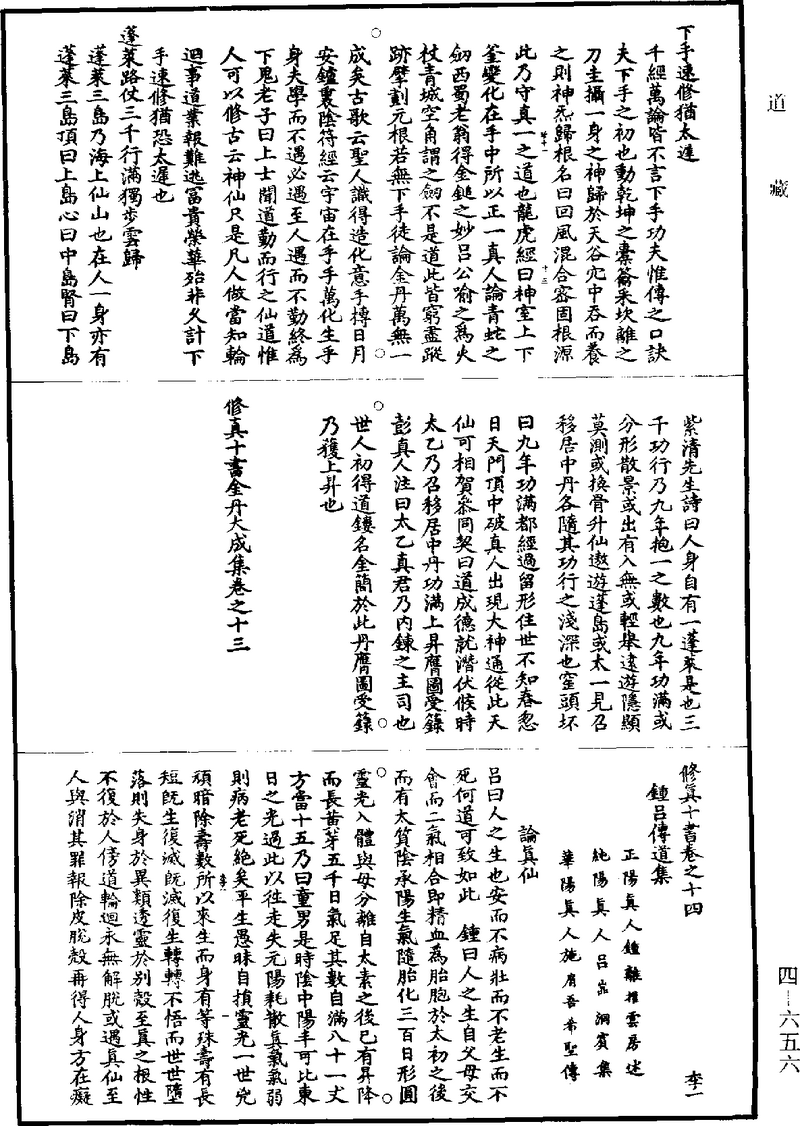 道藏
下手速修猶太遲
千經萬論皆不言下手功夫惟傳之口訣
夫下手之初也動乾坤之橐籥采坎離之
刀圭攝一身之神歸於天谷穴中吞而養
之則神炁歸根名曰回風混合密固根源
此乃守真一之道也龍虎經曰神室上下
釜變化在手中所以正一真人論青蛇之
劒西蜀老翁得金鎚之妙呂公喻之爲火
杖青城空角謂之劒不是道此皆窮盡蹤
跡擘劃元根若無下手徒論金丹萬無一
成矣古歌云聖人識得造化意手摶日月
安鑪裏陰符經云宇宙在乎手萬化生乎
身夫學而不遇必遇至人遇而不勤終爲
下鬼老子曰上士聞道勤而行之仙道惟
人可以修古云神仙只是凡人做當知輪
迴事道業報難逃富貴榮華殆非久計下
手速修猶恐太遲也
蓬萊路仗三千行滿獨步雲歸
蓬萊三島乃海上仙山也在人一身亦有
蓬萊三島頂曰上島心曰中島腎曰下島
紫清先生詩曰人身自有一蓬萊是也三
千功行乃九年抱一之數也九年功滿或
分形散景或出有入無或輕舉遠遊隱顯
莫測或換骨升仙遨遊蓬島或太一見召
移居中丹各隨其功行之淺深也窑頭坯
曰九年功滿都經過留形住世不知春忽
日天門頂中破真人出現大神通從此天
仙可相賀參同契曰道成德就潛伏俟時
太乙乃召移居中丹功滿上昇膺圖受籙
彭真人注曰太乙真君乃內鍊之主司也
世人初得道鏤名金簡於此丹膺圖受籙
乃獲上昇也
修真十書金丹大成集卷之十三
修真十書卷之十四
李一
鍾呂傳道集
正陽真人鍾離權雲房述
純陽真人呂嵓洞賓集
華陽真人施肩吾希聖傳
論真仙
呂曰人之生也安而不病壯而不老生而不
死何道可致如此　鍾曰人之生自父母交
會而二氣相合即精血爲胎胞於太初之後
而有太質陰承陽生氣隨胎化三百日形圓
靈光入體與母分離自太素之後已有昇降
而長黃芽五千日氣足其數自滿八十一丈
方當十五乃曰童男是時陰中陽半可比東
日之光過此以往走失元陽耗散真氣氣弱
則病老死絶矣平生愚昧自損靈光一世兇
頑暗除壽數所以來生而身有等殊壽有長
短既生復滅既滅復生轉轉不悟而世世墮
落則失身於異類透靈於別殼至真之根性
不復於人傍道輪迴永無解脫或遇真仙至
人與消其罪報除皮脫殼再得人身方在癡
四—六五六